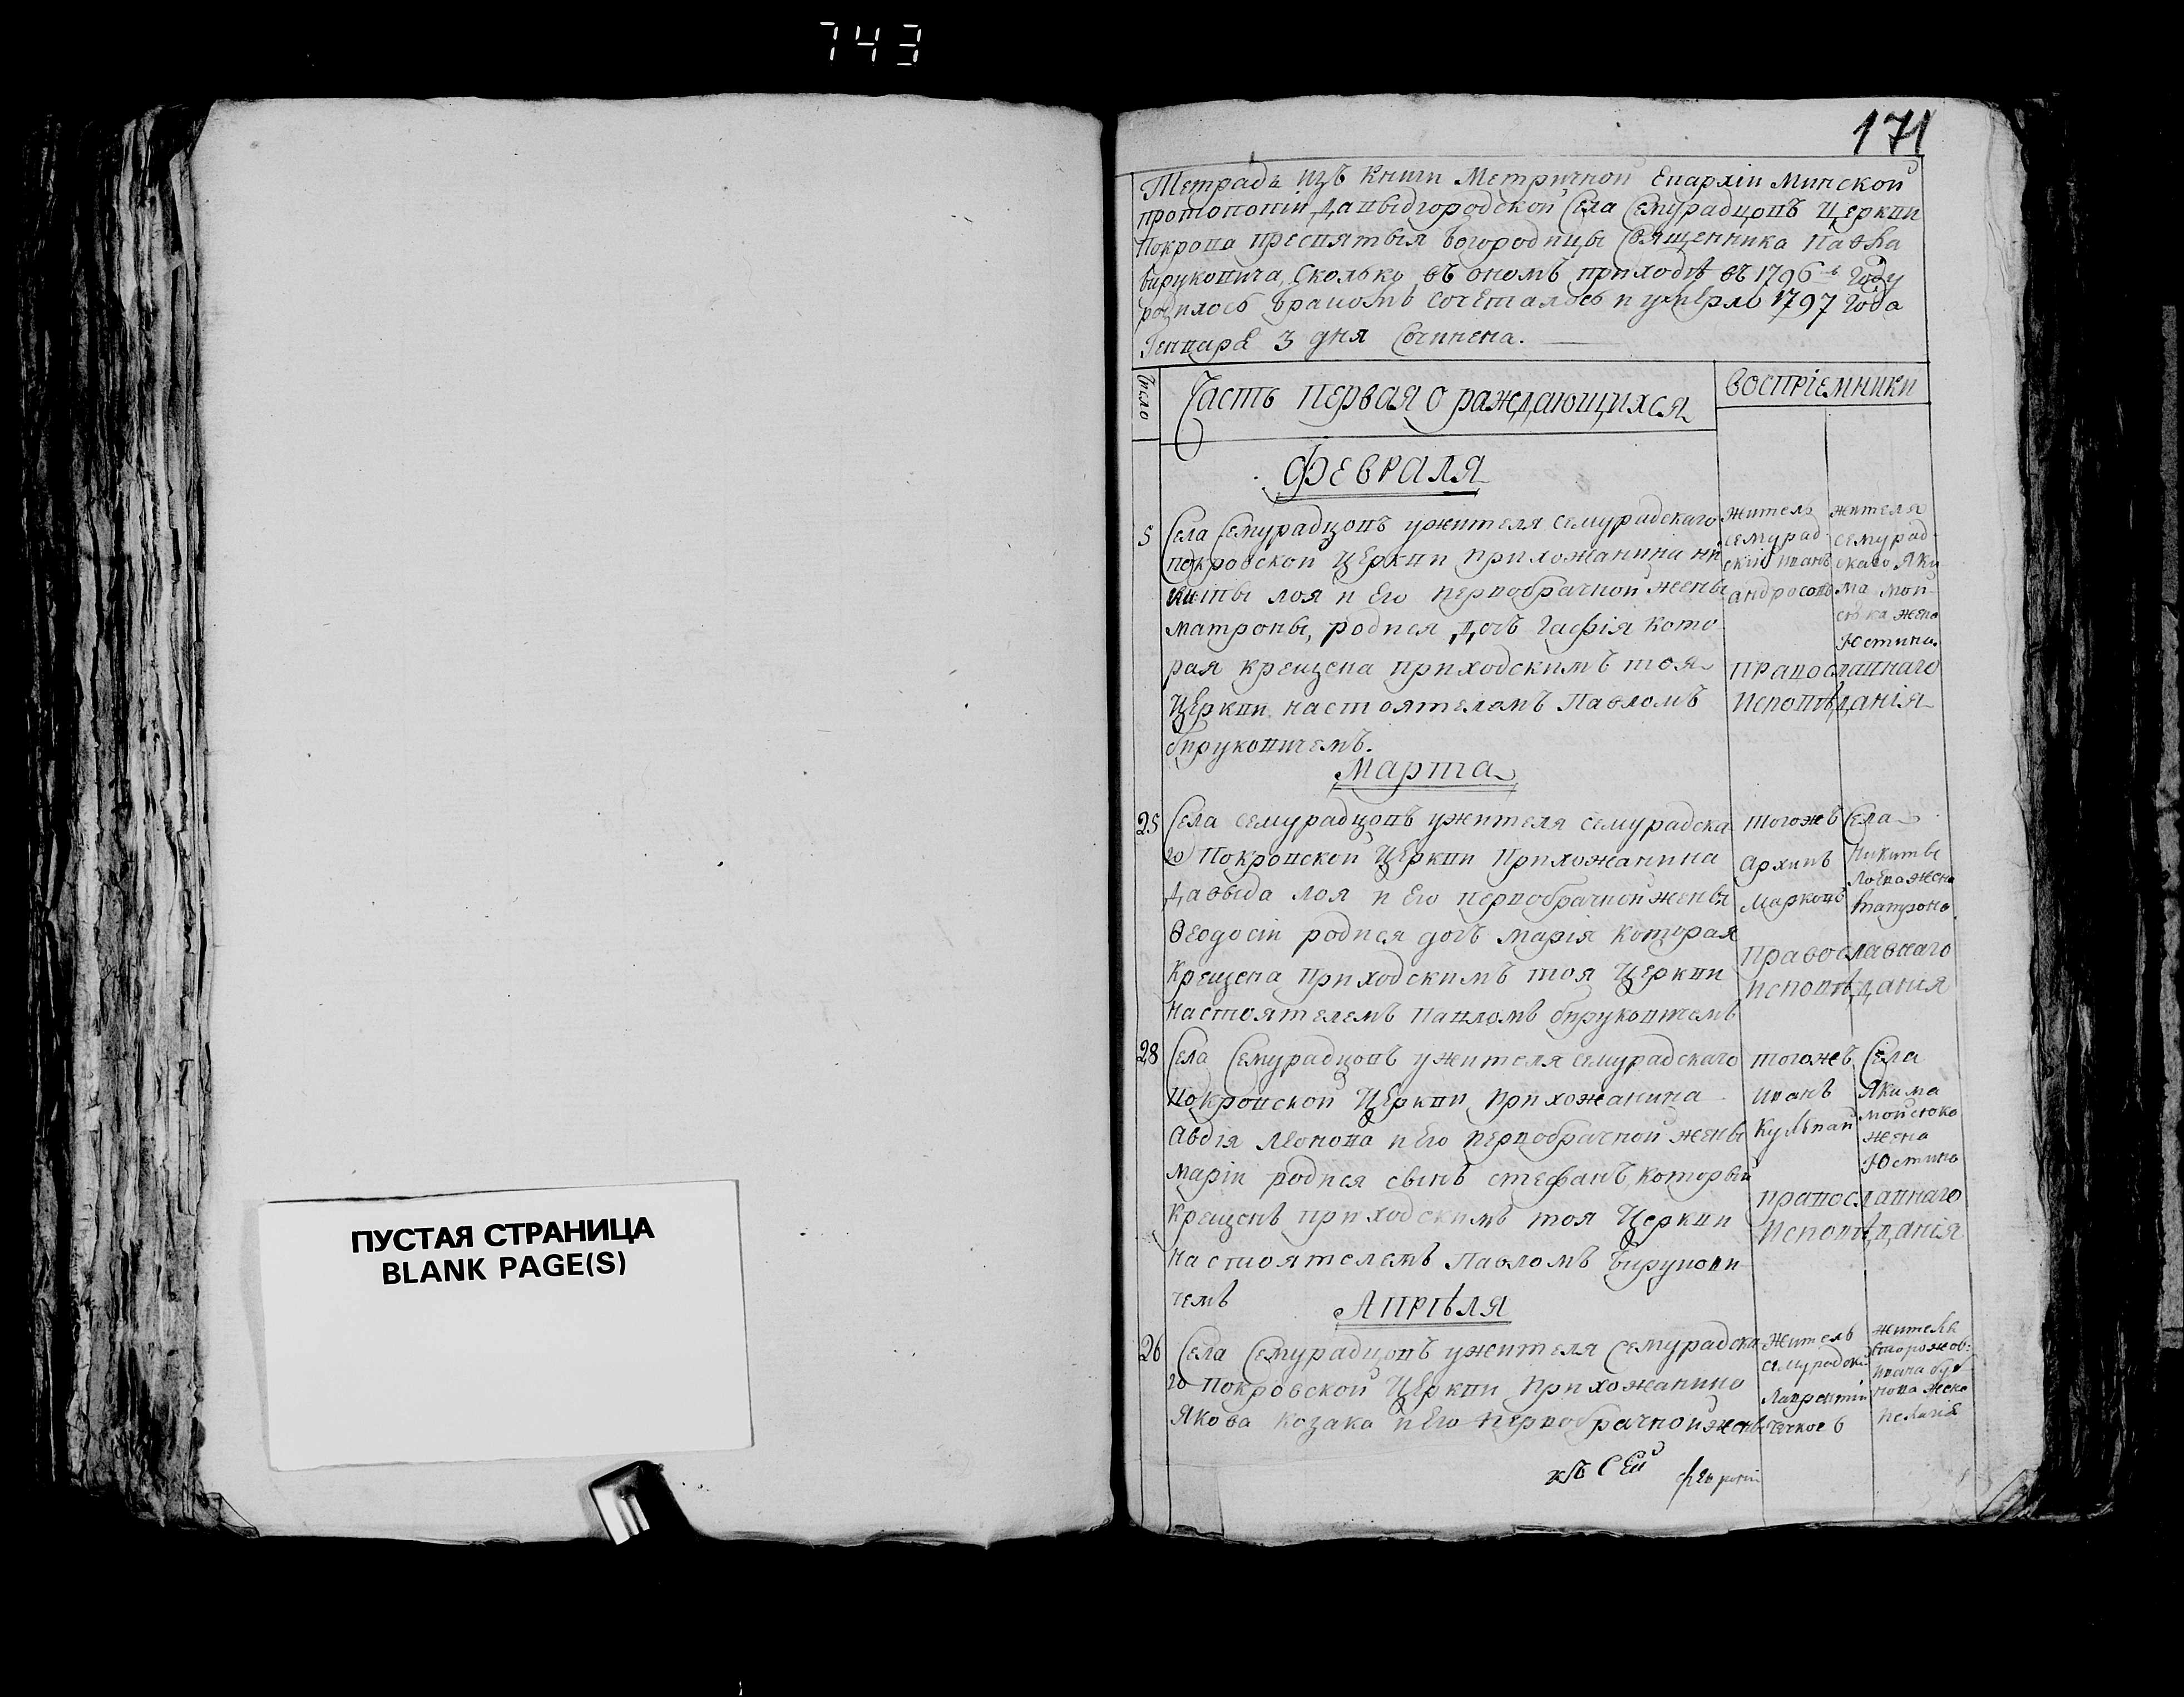 743
ПУСТАЯ СТРАНИЦА
BLANK PAGE(S)
171
Тетрадь изъ Книги Метричной Епархіи Минской
протопопіи Давыдгородской Села Семурадцовъ Церкви
Покрова пресвятыя Богородицы Священника Павла
Бируковича, Сколько въ ономъ приходѣ въ 1796 Году
родилось бракомъ сочеталось и умерло 1797 Года
Генваря 3 дня Сочинена.
Число
Часть первая о раждающихся
Воспріемники
Февраля
5
Села Семурадцовъ ужителя семурадскаго
покровской Церкви прихожанина ни
киты лоя и Его первобрачной жены
матроны, родися дочь Гафія кото
рая крещена приходскимъ тоя
Церкви настоятелемъ Павломъ
бируковичемъ.
житель
семурад
скій иванъ
андросовъ
жителя
семурад
скаго Яки
ма мой
сюка жена
Юстина
православнаго
Исповѣданія
Марта
25
Села семурадцовъ ужителя семурадска
го Покровской Церкви Прихожанина
Давыда лоя и Его первобрачной жены
Ѳеодосіи родися дочь марія которая
Крещена приходскимъ тоя Церкви
настоятелемъ Павломъ бируковичемъ
тогожъ Села
Архипъ
Марковъ
Никиты
жена
православнаго
исповѣданія
28
Села Семурадцовъ ужителя семурадскаго
Покровской Церкви прихожанина
Авдія Леонова и Его первобрачной жены
маріи родися сынъ стефанъ, который
Крещенъ приходскимъ тоя Церкви
настоятелемъ Павломъ Бирукови
чемъ
тогожъ Села
иванъ
Кульпач
Якима
мойсюка
жена
Юстина
православнаго
Исповѣданія
Апрѣля
26
Села Семурадцовъ ужителя Семурадска
го Покровской Церкви прихожанина
Якова Козака и Его первобрачной жены
Житель
семурадскій
Лаврентій
жителя
ивана
жена
Пелагія
къ Сей